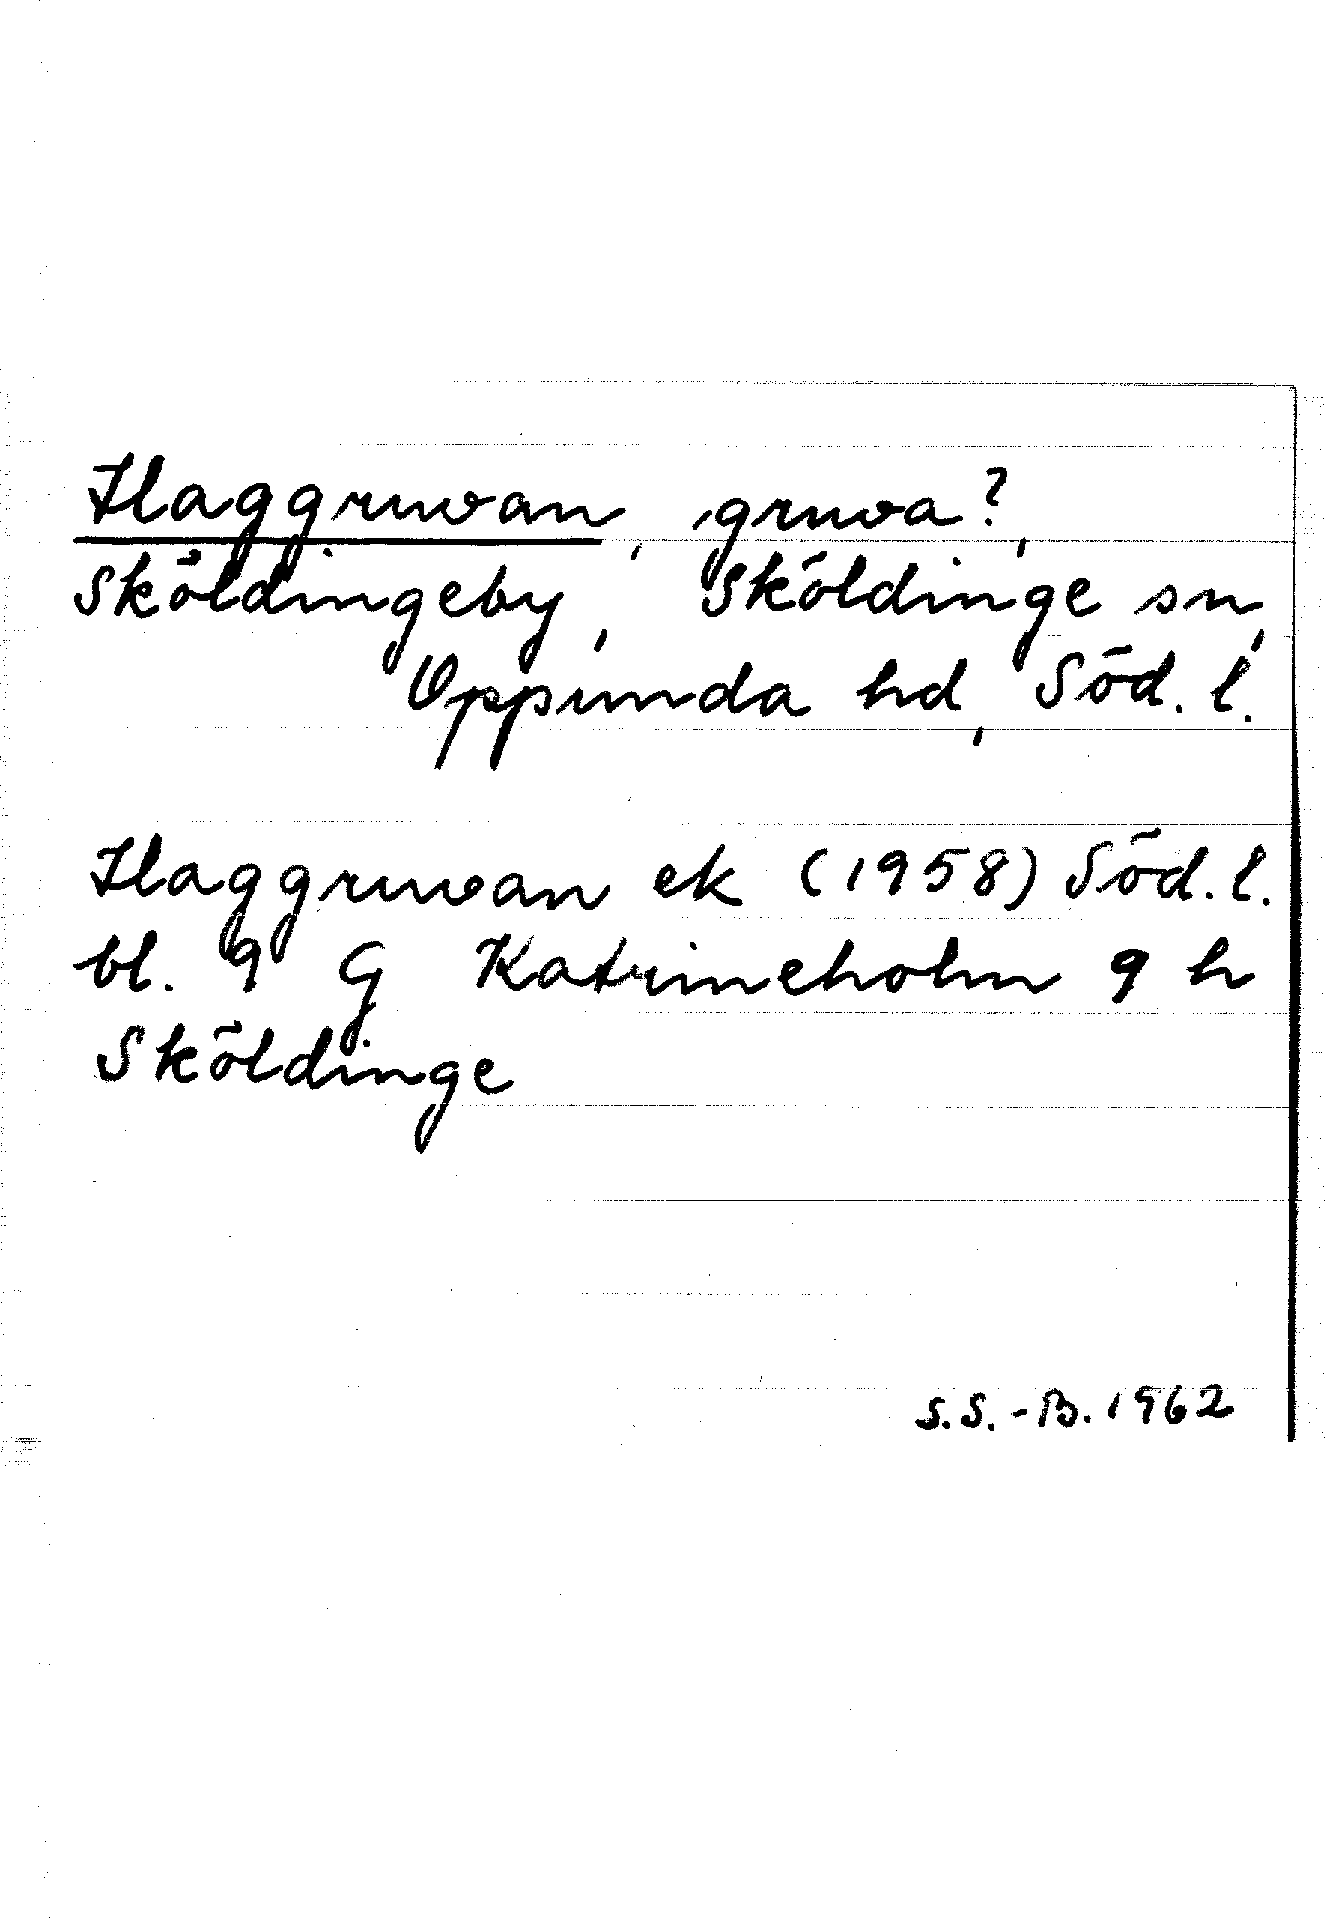 Haggruvan, gruva?,
Sköldingeby, Sköldinge sn,
Oppunda hd, Söd. l.
Haggruvan ek (1958) Söd. l.
bl. 9 G Katrineholm 9 h
Sköldinge
S.S.-B. 1962